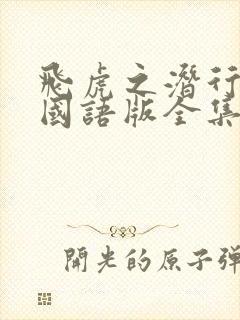 飛虎之潛行
國語版全集
開光的原子彈